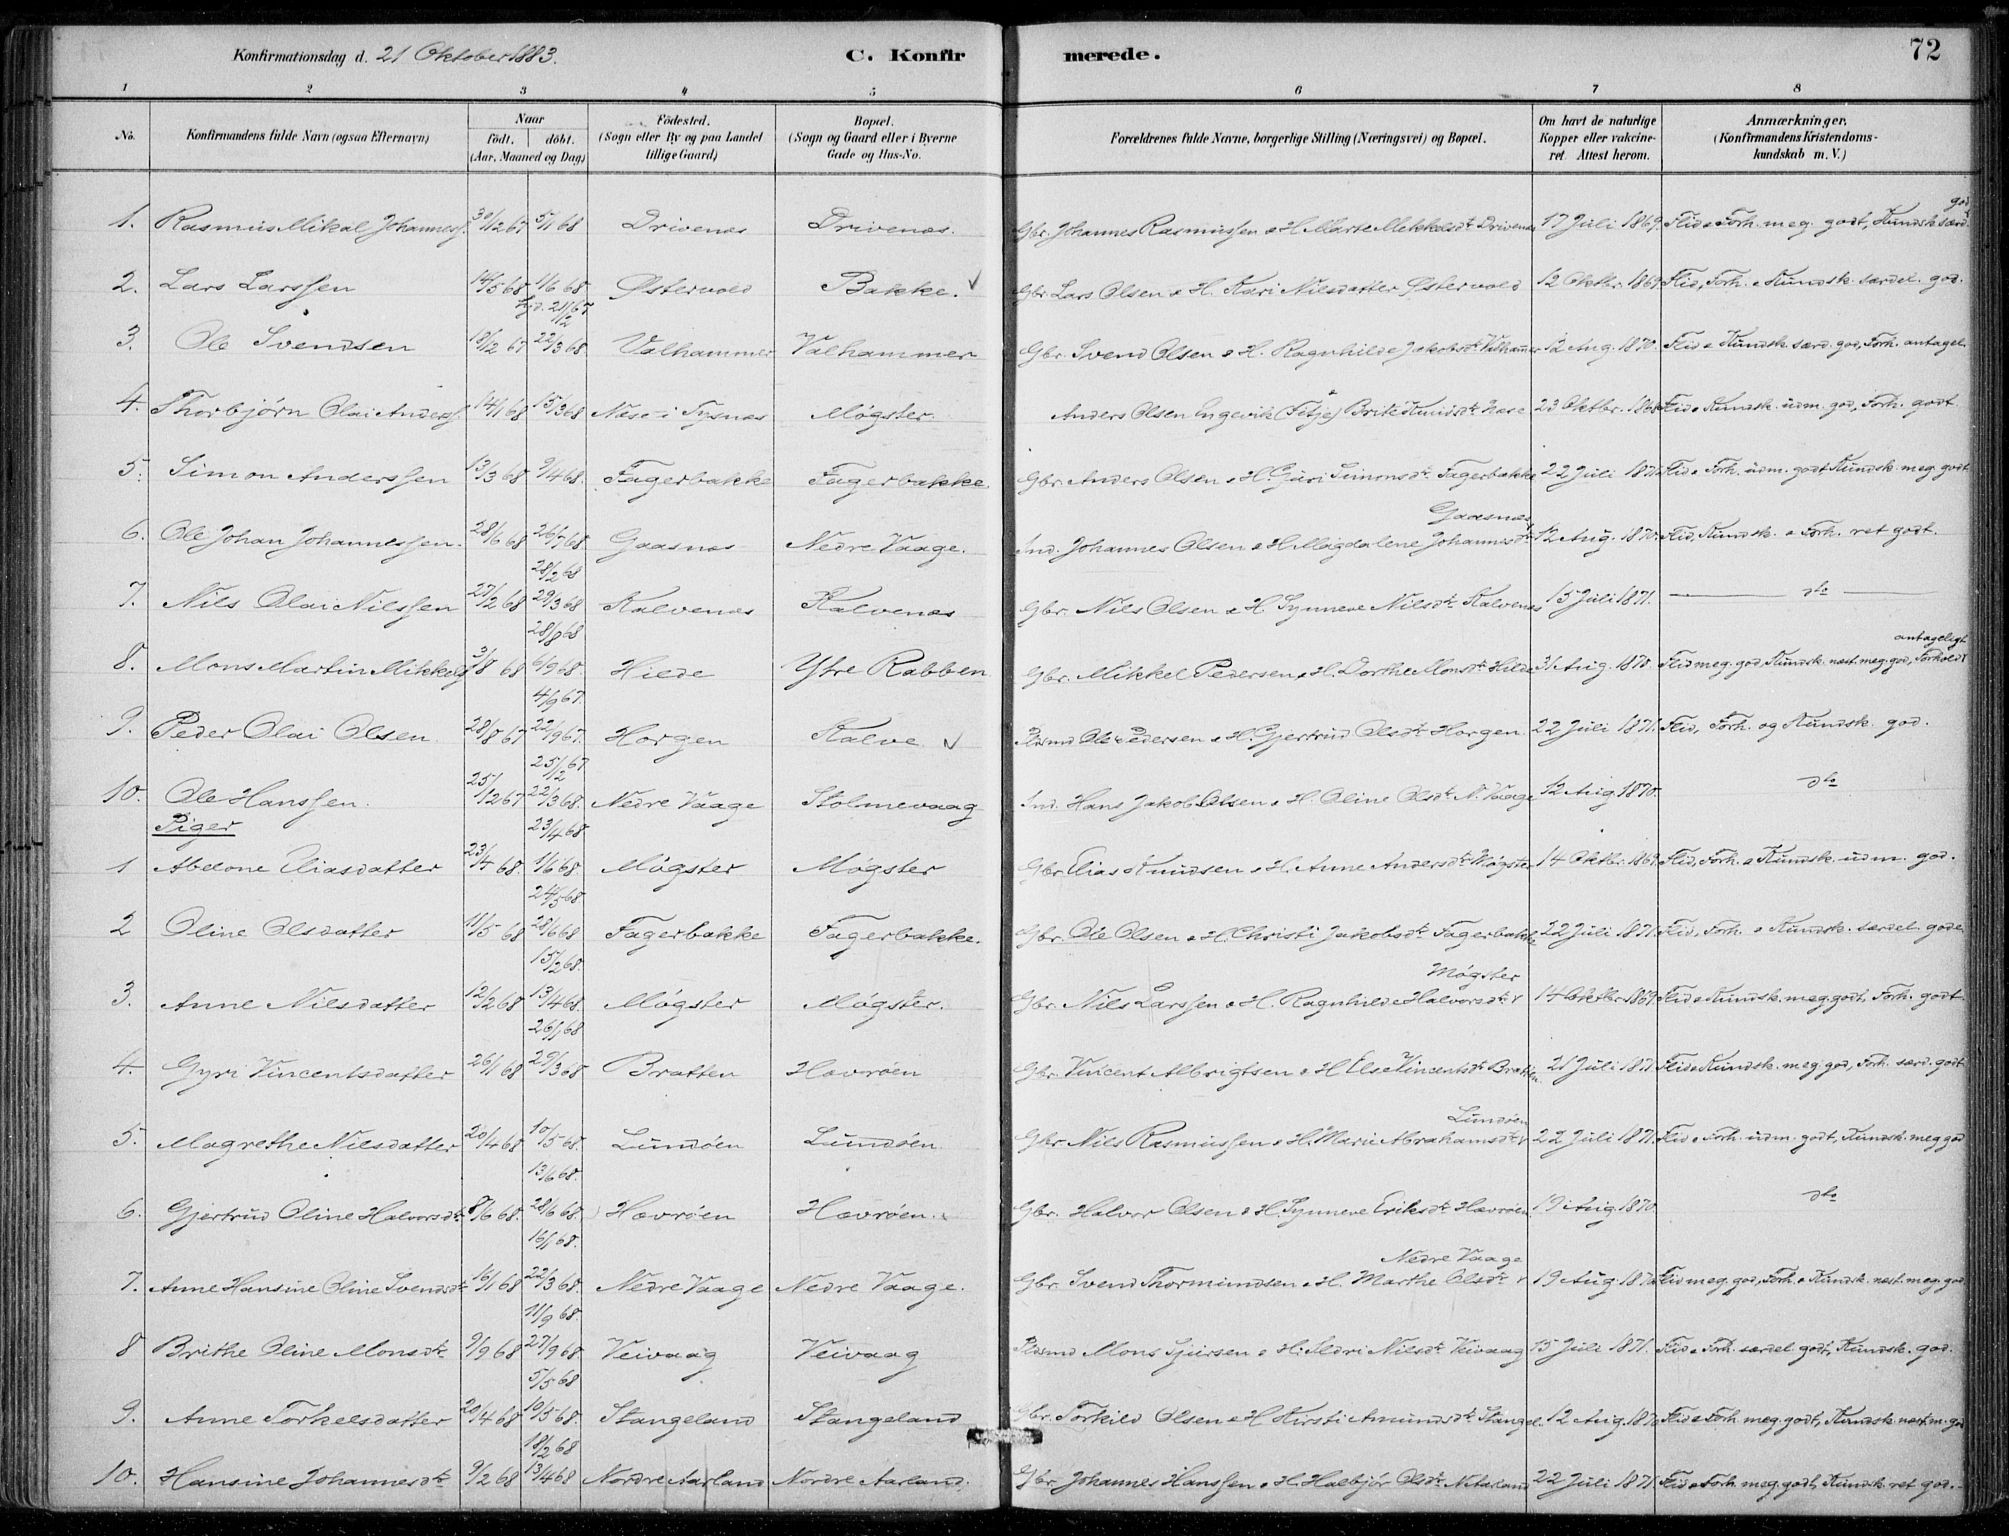 Konfirmationsdag d. 21 Oktober 1883. C. Konfirmerede. 72
1 2 3 4 5 6 7 8
No. Konfirmandens fulde Navn (ogsaa Efternavn) Naar födt. döbt. (Aar, Maaned og Dag) Födested. (Sogn eller By og paa Landet tillige Gaard) Bopæl. (Sogn og Gaard eller i Byerne Gade og Hus-No. Forældrenes fulde Navne, borgerlige Stilling (Næringsvei) og Bopæl. Om havt de naturlige Kopper eller vakcineret. Attest herom. Anmærkninger. (Konfirmandens Kristendomskundskab m. V.)
god
1. Rasmus Mikal Johanness. 30/12 67 5/1 68 Drivenæs Drivenæs. Gbr. Johannes Rasmussen & H. Marte Mikkelsdt Drivenæs 17 Juli 1869. Flid & Forh. meg. godt, Kundsk. særd.
2. Lars Larssen 14/5 68 1/6 68 Østervold Bakke. Gbr. Lars Olsen & H. Kari Nilsdatter Østervold 12 Oktbr. 1869 Flid, Forh. & Kundsk. særdel. god.
hjd. 21/12 67
3. Ole Svendsen 18/12 67 22/3 68 Valhammer Valhammer Gbr. Svend Olsen & H. Ragnhilde Jakobsdt Valhammer 12 Aug. 1870. Flid & Kundsk. særd. god, Forh. antagel.
4. Thorbjörn Olai Anderss. 14/1 68 15/3 68 Næse i Tysnæs Møgster. Anders Olsen Engevik (Fitje) & Brite Knudsdt Næse 23 Oktbr. 1868 Flid & Kundsk. udm. god, Forh. godt
5. Simon Anderssen 13/3 68 9/4 68. Fagerbakke Fagerbakke Gbr. Anders Olsen & H. Guri Simonsdt Fagerbakke 22 Juli 1871 Flid & Forh. udm. godt, Kundsk. meg. godt
Gaasnæs
6. Ole Johan Johannessen. 28/6 68 26/7 68 Gaasnæs Nedre Vaage. Ind. Johannes Olsen & H. Magdalene Johannesdt 12 Aug. 1870. Flid, Kundsk. & Forh. ret godt.
28/2 68
7. Nils Olai Nilssen 27/2 68 29/3 68 Kalvenæs Kalvenæs Gbr. Nils Olsen & H. Synneve Nilsdt Kalvenæs 15 Juli 1871. dto
28/8 68 antageligt
8. Mons Martin Mikkels. 3/8 68 6/9 68. Hilde Ytre Rabben Gbr. Mikkel Pedersen & H. Dorthe Monsdt Hilde 31 Aug. 1870. Flid meg. god, Kundsk. næst. meg. god, Forhold
4/9 67.
9. Peder Olai Olsen 28/8 67 22/9 67. Horgen Kalve Plsmd Ole Pedersen & H. Gjertrud Olsdt Horgen. 22 Juli 1871. Flid, Forh. og Kundsk. god.
25/12 67
10. Ole Hanssen. 25/12 67 22/3 68. Nedre Vaage Stolmevaag Ind. Hans Jakob Olsen & H. Oline Olsdt N. Vaage 12 Aug. 1870. dto
Piger 23/4 68.
1 Abelone Eliasdatter 23/4 68. 1/6 68. Møgster Møgster Gbr. Elias Knudsen & H. Anne Andersdt Møgster 14 Oktbr. 1869. Flid, Forh. & Kundsk. udm. god.
24/5 68.
2 Oline Olsdatter 11/5 68 28/6 68 Fagerbakke Fagerbakke. Gbr. Ole Olsen & H. Christi Jakobsdt Fagerbakke 22 Juli 1871. Flid, Forh. & Kundsk. særdel. gode
15/2 68. Møgster
3. Anne Nilsdatter 12/2 68 13/4 68. Møgster Møgster. Gbr. Nils Larssen & H. Ragnhilde Halvorsdt 14 Oktbr. 1869. Flid & Kundsk. meg. godt, Forh. godt
26/1 68
4. Gyri Vincentsdatter 26/1 68 29/3 68 Bratten Havrøen Gbr. Vincent Albrigtsen & H Else Vincentsdt Bratten 21 Juli 1871. Flid & Kundsk. meg. god, Forh. særd. godt
Lundøen
5. Magrethe Nilsdatter 20/4 68 10/5 68. Lundøen Lundøen. Gbr Nils Rasmussen & H. Marie Abrahamsdt 22 Juli 1871. Flid & Forh. udm. godt, Kundsk. meg god
13/6 68.
6. Gjertrud Oline Halvorsdt 8/6 68. 28/6 68. Havrøen Havrøen. Gbr. Halvor Olsen & H. Synneve Eriksdt Havrøen 19 Aug. 1870. dto
16/1 68. Nedre Vaage
7. Anne Hansine Oline Svendsdt 16/1 68 22/3 68. Nedre Vaage Nedre Vaage. Gbr. Svend Thormundsen & H. Marthe Olsdt 19 Aug. 1870 Flid meg. god, Forh. & Kundsk. næst. meg. god.
11/9 68.
8 Brithe Oline Monsdt 9/9 68 27/9 68. Veivaag Veivaag Plsmd Mons Sjursen & H. Sidri Nilsdt Veivaag 15 Juli 1871. Flid & Forh. særdel. godt, Kundsk. god.
5/5 68
9. Anne Torkelsdatter 20/4 68 10/5 68. Stangeland Stangeland Gbr. Torkild Olsen & H Kirsti Amundsdt Stangel. 12 Aug. 1870 Flid & Forh. meg. godt, Kundsk. næst. m. god
18/2 68
10. Hansine Johannesdt 9/2 68 13/4 68 Nordre Aarland Nordre Aarland. Gbr. Johannes Hanssen & H. Halbjör Olsdt N. Aarland 22 Juli 1871. Flid & Forh. meg. godt, Kundsk. ret god.